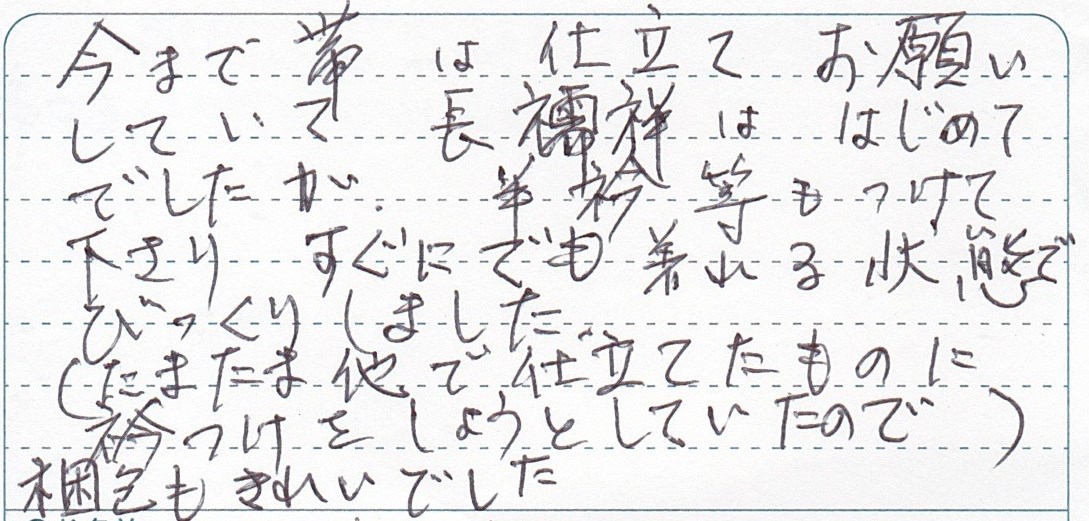 今まで帯は仕立てお願い
していて 長襦袢は はじめて
でしたが、半衿等もつけて
下さり すぐにでも着れる状態で
びっくりしました。
(たまたま他で仕立てたものに
衿つけをしようとしていたので)
梱包もきれいでした